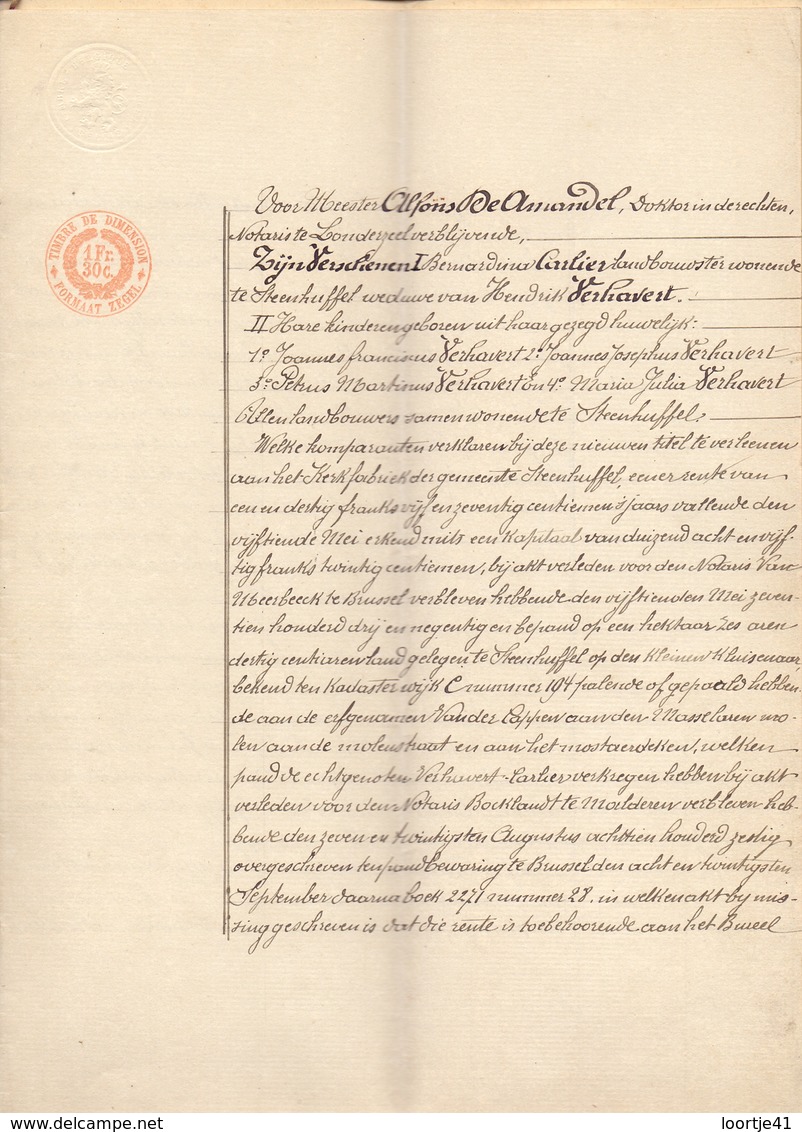 TIMBRE DE DIMENSION
1 Fr.
30 c.
FORMAAT ZEGEL
Voor Meester Alfons De Amandel, Doktor in de rechten,
Notaris te Londerzeel verblijvende,
Zijn Verschenen I Bernardina Carlier landbouwster wonende
te Steenhuffel weduwe van Hendrik Verhavert.
II Hare kinderen geboren uit haar gezegd huwelijk:
1º Joannes franciscus Verhavert 2º Joannes Josephus Verhavert
3º Petrus Martinus Verhavert en 4º Maria Julia Verhavert
Allen landbouwers samenwonende te Steenhuffel,
Welke komparanten verklaren bij deze nieuwen titel te verleenen
aan het Kerkfabriek der gemeente Steenhuffel, eener rente van
een en dertig franks vijf en zeventig centiemen 's jaars vallende den
vijftiende Mei erkend mits een kapitaal van duizend acht en vijf-
tig franks twintig centiemen, bij akt verleden voor den Notaris Van
Meerbeeck te Brussel verbleven hebbende den vijftienden Mei zeven-
tien honderd drij en negentig en bepand op een hektaar zes aren
dertig centiaren land gelegen te Steenhuffel op den kleinen Kluisenaar,
bekend ten Kadaster wijk C nummer 194 palende of gepaald hebben-
de aan de erfgenamen Van der Cappen aan den Masselaren mo-
len aan de molenstraat en aan het mostaerdeken, welken
pand de echtgenoten Verhavert-Carlier verkregen hebben bij akt
verleden voor den Notaris Bocklandt te Malderen verbleven heb-
bende den zeven en twintigsten Augustus achttien honderd zestig
overgeschreven ten pandbewaring te Brussel den acht en twintigsten
September daarna boek 2271 nummer 28. in welken akt bij mis-
sing geschreven is dat die rente is toebehoorende aan het Bureel
www.delcampe.net
loortje41